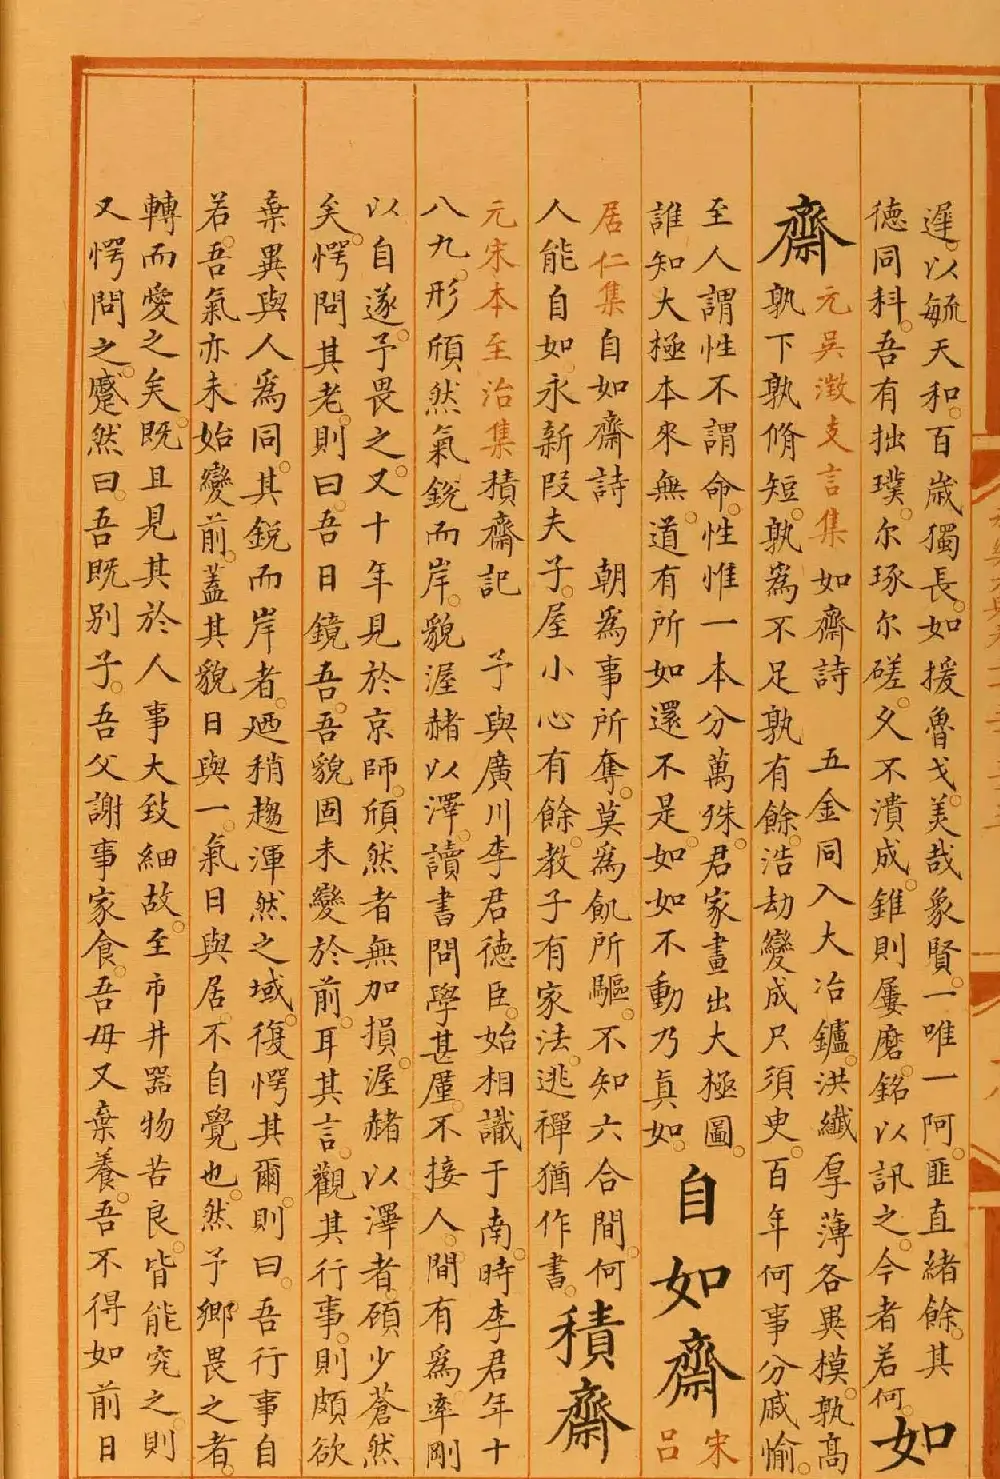 遲。以毓天和。百歲獨長。如援魯戈。美哉象賢。一唯一阿。匪直緒餘。其
德同科。吾有拙璞。尔琢尔磋。久不潰成。錐則屢磨。銘以訊之。今者若何。如
齋元吳澂支言集如齋詩 五金同入大冶鑪。洪纖厚薄各異模。孰高
孰下孰脩短。孰爲不足孰有餘。浩劫變成尺須臾。百年何事分戚愉。
至人謂性不謂命。性惟一本分萬殊。君家畫出大極圖。
誰知大極本來無。道有所如還不是。如如不動乃真如。自如齋宋呂
居仁集自如齋詩 朝爲事所奪。莫爲飢所驅。不知六合間。何
人能自如。永新段夫子。屋小心有餘。教子有家法。逃禪猶作書。積齋
元宋本至治集積齋記 予與廣川李君德臣。始相識于南。時李君年十
八九。形頎然氣銳而岸。貌渥赭以澤。讀書問學甚厪。不接人。間有爲。率剛
以自遂。予畏之。又十年見於京師。頎然者無加損。渥赭以澤者。碩少蒼然
矣。愕問其老。則曰。吾日鏡吾。吾貌固未變於前。耳其言。觀其行事。則頗欲
棄異與人爲同。其銳而岸者。廼稍趨渾然之域。復愕其爾。則曰。吾行事自
若。吾氣亦未始變前。蓋其貌日與一。氣日與居。不自覺也。然予鄉畏之者。
轉而愛之矣。既且見其於人事大致細故。至市井器物苦良。皆能究之。則
又愕問之。蹙然曰。吾既别子。吾父謝事家食。吾母又棄養。吾不得如前日